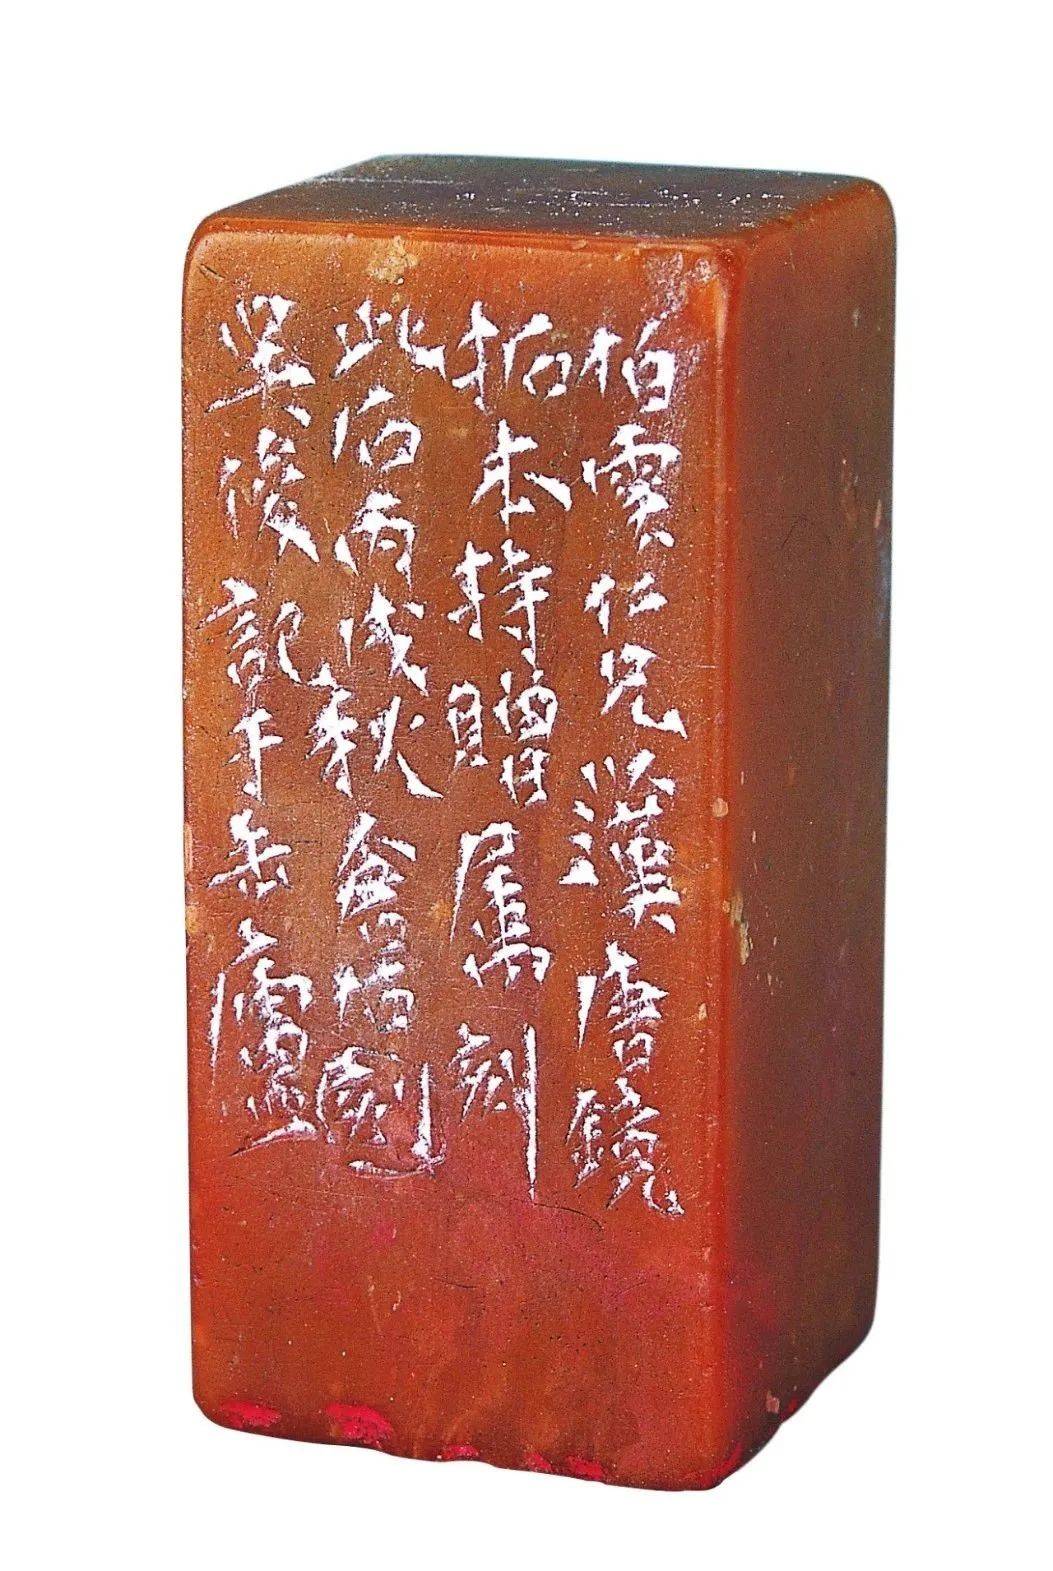 伯雲仁兄以漢唐鏡
拓本持贈屬刻
此石丙戌秋
吳俊記于缶廬